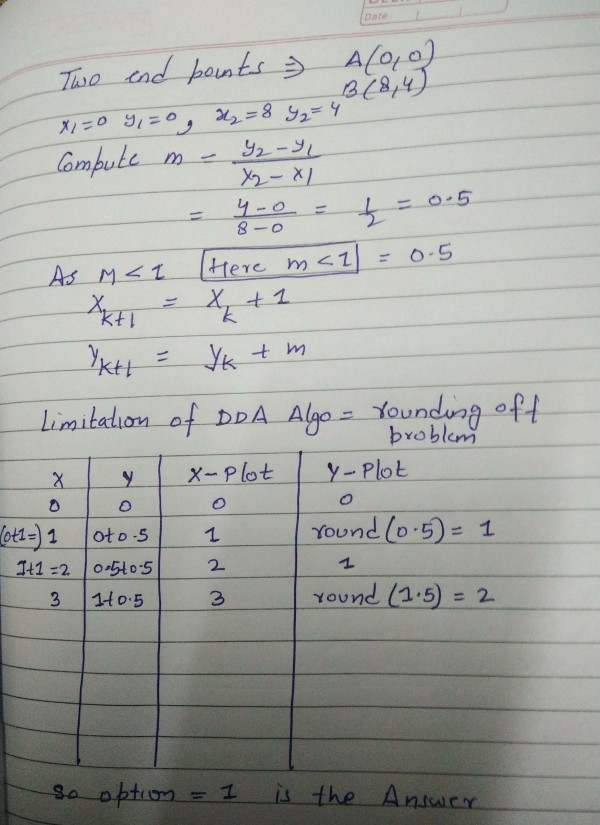 Date
Two end points ⇒ A(0,0)
B(8,4)
x1=0 y1=0, x2=8 y2=4
Compute m = y2-y1 / x2-x1
= 4-0 / 8-0 = 1/2 = 0.5
As M<1 Here m<1 = 0.5
Xk+1 = Xk + 1
Yk+1 = Yk + m
Limitation of DDA Algo = rounding off
problem
X Y X-Plot Y-Plot
0 0 0 0
(0+1=) 1 0+0.5 1 round (0.5) = 1
1+1=2 0.5+0.5 2 1
3 1+0.5 3 round (1.5) = 2
So option = 1 is the Answer